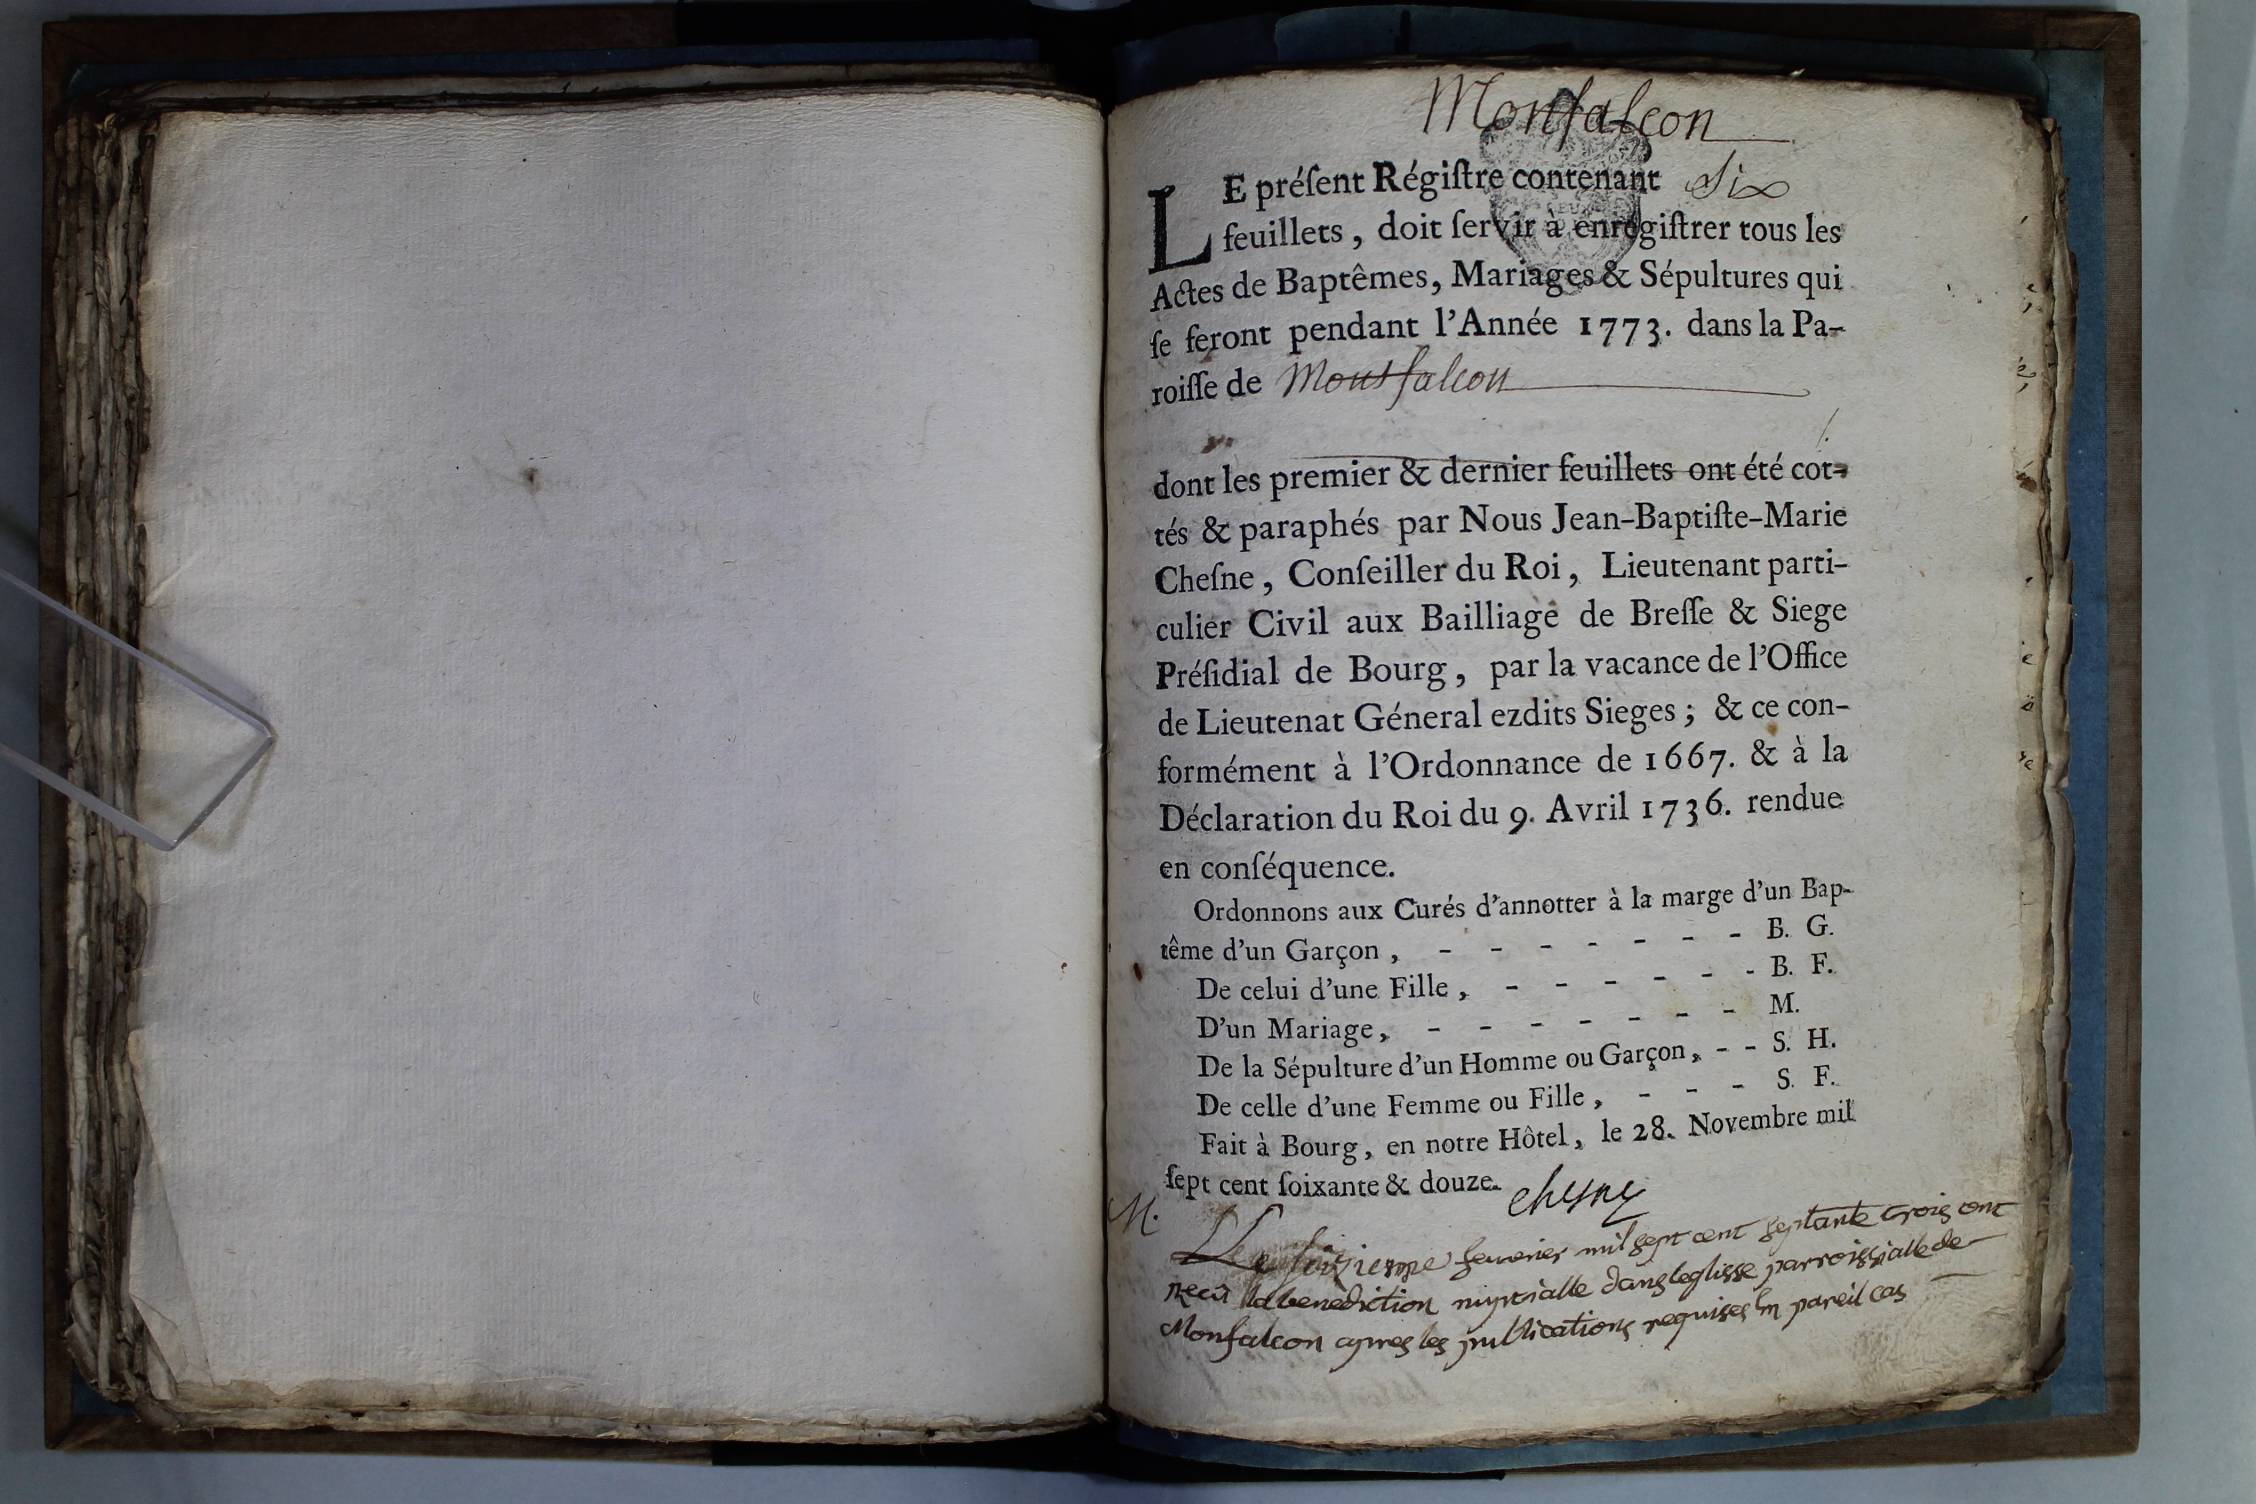 Monfalcon
LE préſent Régiſtre contenant six
feuillets, doit ſervir à enrégiſtrer tous les
Actes de Baptêmes, Mariages & Sépultures qui
ſe feront pendant l'Année 1773. dans la Pa-
roiſſe de Montfalcon
dont les premier & dernier feuillets ont été cot-
tés & paraphés par Nous Jean-Baptiſte-Marie
Cheſne, Conſeiller du Roi, Lieutenant parti-
culier Civil aux Bailliage de Breſſe & Siege
Préſidial de Bourg, par la vacance de l'Office
de Lieutenat Géneral ezdits Sieges; & ce con-
formément à l'Ordonnance de 1667. & à la
Déclaration du Roi du 9. Avril 1736. rendue
en conſéquence.
Ordonnons aux Curés d'annotter à la marge d'un Bap-
tême d'un Garçon, - - - - - - - B. G.
De celui d'une Fille, - - - - - - B. F.
D'un Mariage, - - - - - - - M.
De la Sépulture d'un Homme ou Garçon, - - S. H.
De celle d'une Femme ou Fille, - - - S. F.
Fait à Bourg, en notre Hôtel, le 28. Novembre mil
ſept cent ſoixante & douze. chesne
M. Le seizieme fevrier mil sept cent septante trois ont
recû la benediction nuptialle dans leglisse parroissialle de
Monfalcon apres les publications requises en pareil cas